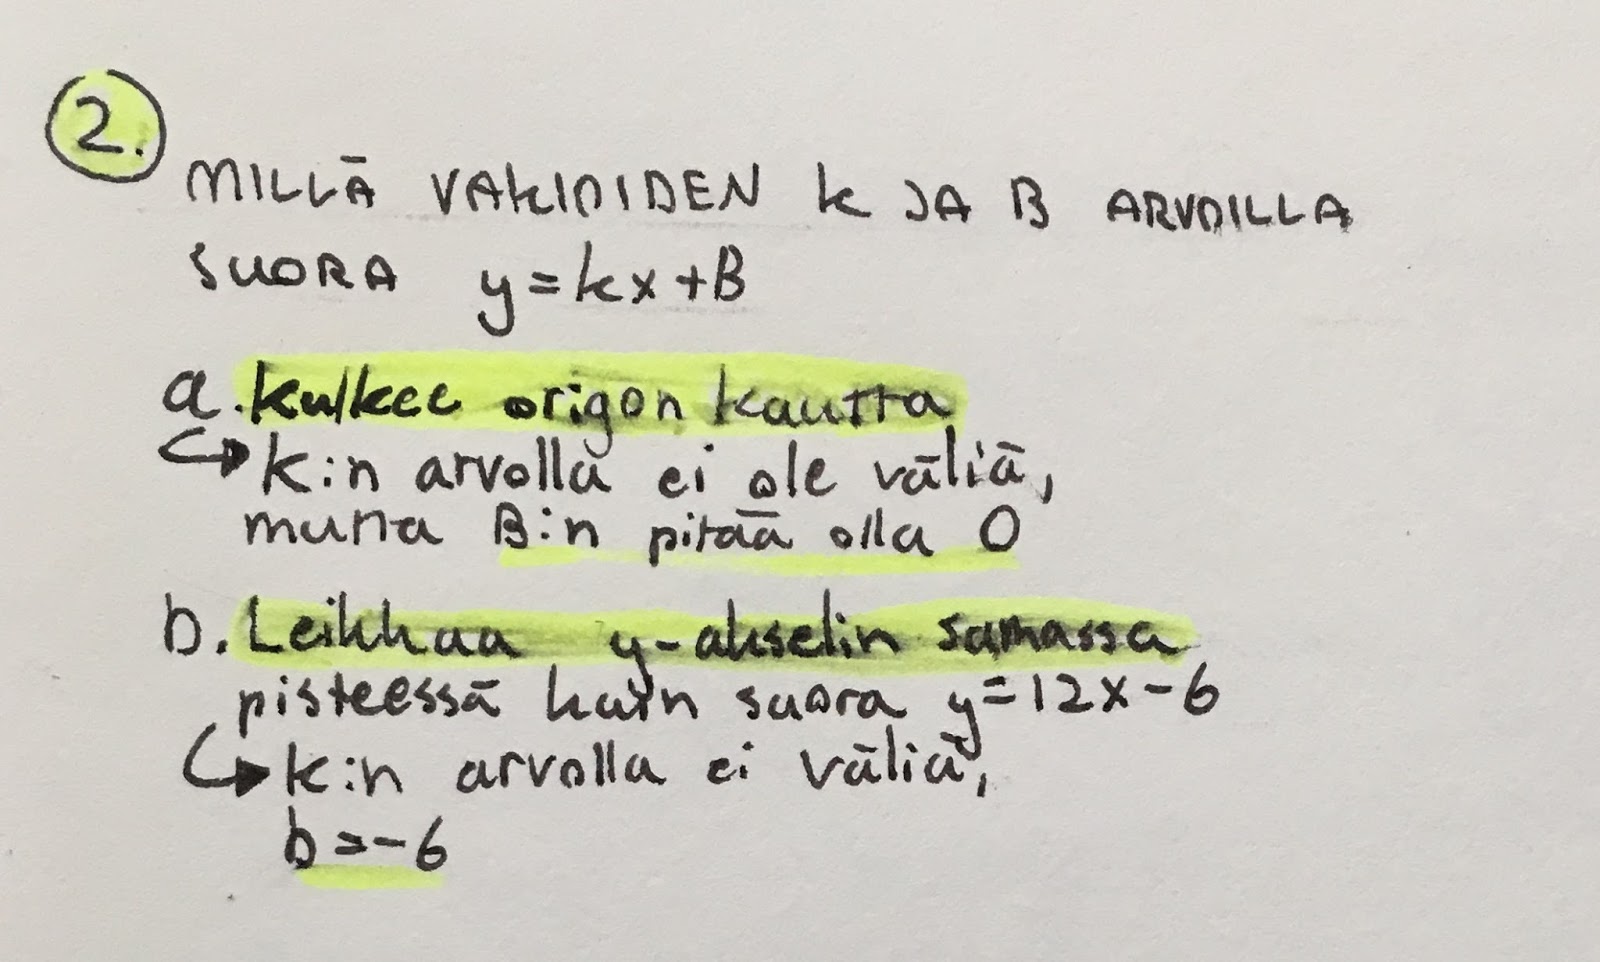 2.
MILLÄ VAKIOIDEN k JA B ARVOILLA
SUORA y=kx+B
a. kulkee origon kautta
↪ k:n arvolla ei ole väliä,
mutta B:n pitää olla 0
b. Leikkaa y-akselin samassa
pisteessä kuin suora y=12x-6
↪ k:n arvolla ei väliä,
b=-6